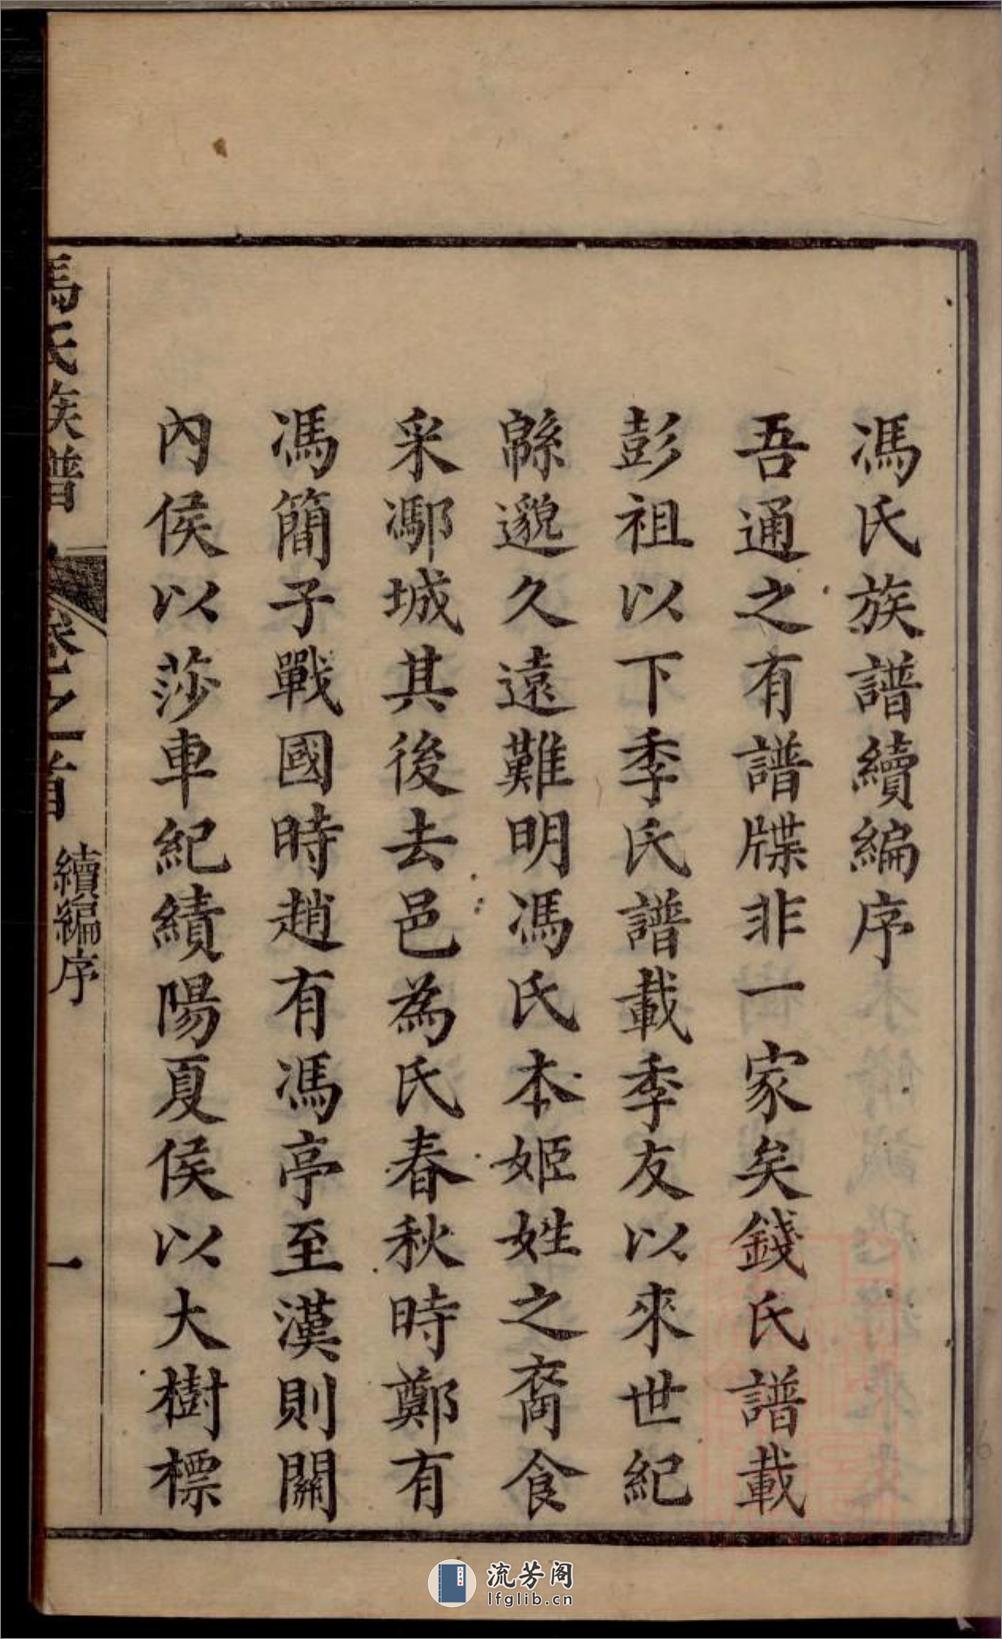 馮氏族譜續編序
吾通之有譜牒非一家矣錢氏譜載
彭祖以下季氏譜載季友以來世紀
緜邈久遠難明馮氏本姬姓之裔食
采鄢城其後去邑為氏春秋時鄭有
馮簡子戰國時趙有馮亭至漢則關
內侯以莎車紀績陽夏侯以大樹標
馮氏族譜
卷之首
續編序
一
流芳阁
lfglib.cn